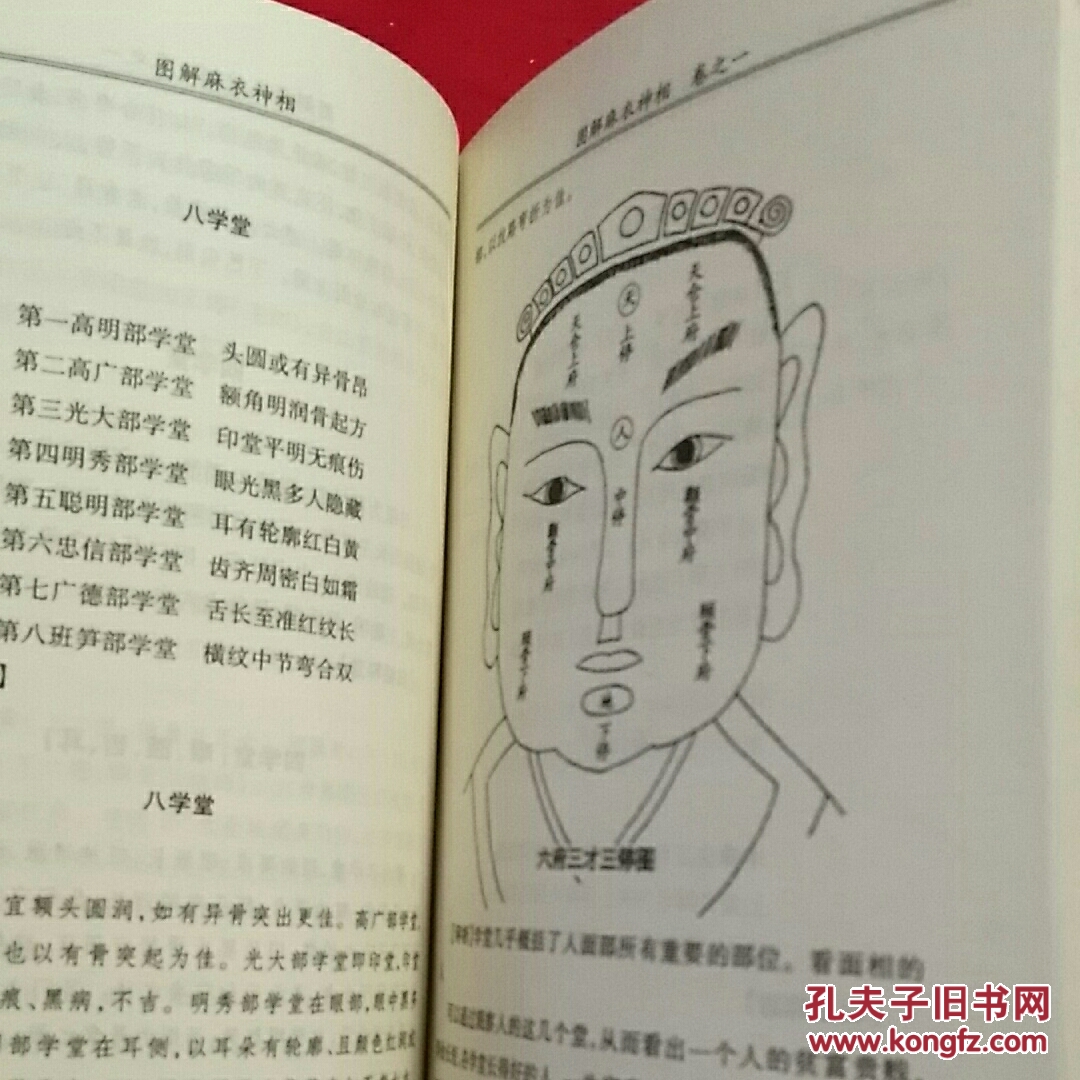 图解麻衣神相
八学堂
第一高明部学堂 头圆或有异骨昂
第二高广部学堂 额角明润骨起方
第三光大部学堂 印堂平明无痕伤
第四明秀部学堂 眼光黑多人隐藏
第五聪明部学堂 耳有轮廓红白黄
第六忠信部学堂 齿齐周密白如霜
第七广德部学堂 舌长至准红纹长
第八班笋部学堂 横纹中节弯合双
】
八学堂
宜额头圆润,如有异骨突出更佳。高广部学堂,
也以有骨突起为佳。光大部学堂即印堂,印堂
痕、黑病,不吉。明秀部学堂在眼部,眼中黑
部学堂在耳侧,以耳朵有轮廓、且颜色红润
图解麻衣神相 卷之一
部,以纹路弯折为佳。
天
上停
天仓上府
天仓上府
人
中停
颧骨中府
颧骨中府
颐骨下府
颐骨下府
地
下停
六府三才三停图
学堂几乎概括了人面部所有重要的部位。看面相的
可以通过观察人的这几个堂,从而看出一个人的贫富贵贱。
孔夫子旧书网
www.kongfz.com